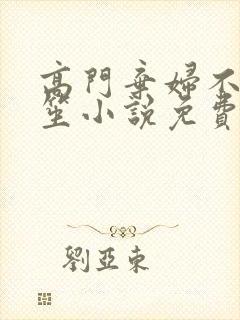 高門棄婦不
笙小說免費
劉亞東